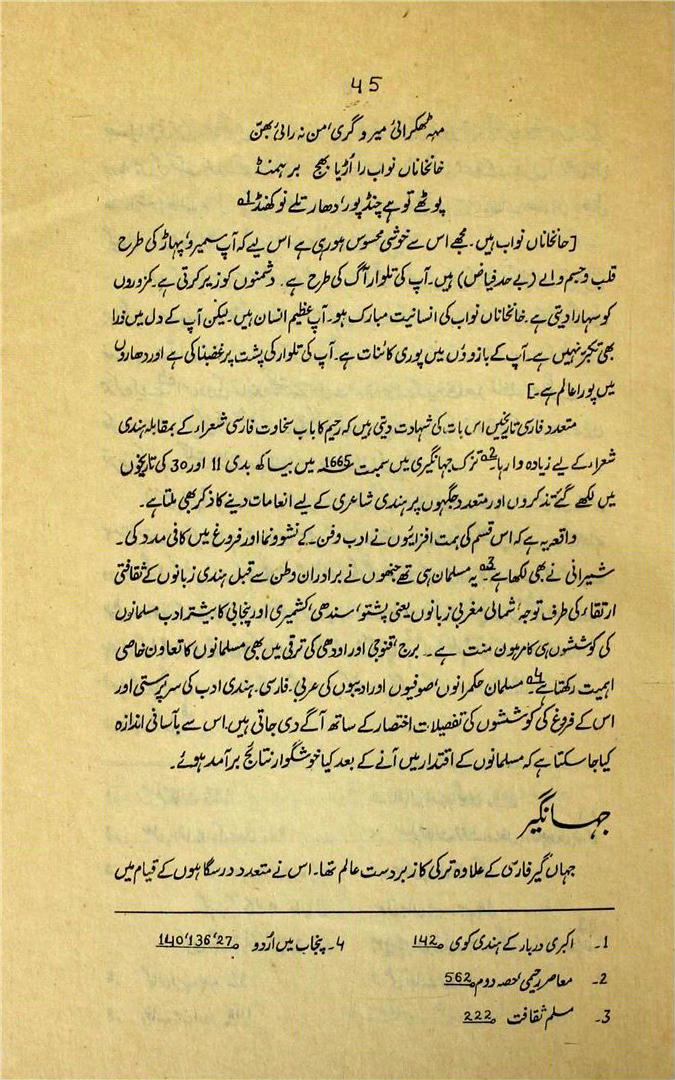 45
مہٹھکرائی میر و گری، من نہ رائی بھنّ
خانخاناں نواب را اُڑیا بھج برہمنڈ
پوٹھے تو ہے چنڈ پور، دھار تلے نوکھنڈ 1
[خانخاناں نواب ہیں۔ مجھے اس سے خوشی محسوس ہو رہی ہے اس لیے کہ آپ سمیرو، پہاڑ کی طرح
قلب و جسم والے (بے حد فیاض) ہیں۔ آپ کی تلوار آگ کی طرح ہے۔ دشمنوں کو زیر کرتی ہے۔ کمزوروں
کو سہارا دیتی ہے۔ خانخاناں نواب کی انسانیت مبارک ہو۔ آپ عظیم انسان ہیں۔ لیکن آپ کے دل میں ذرا
بھی تکبّر نہیں ہے۔ آپ کے بازوؤں میں پوری کائنات ہے۔ آپ کی تلوار کی پشت پر غضبناکی ہے اور دھاروں
میں پورا عالم ہے۔]
متعدد فارسی تاریخیں اس بات کی شہادت دیتی ہیں کہ رحیم کا باب سخاوت فارسی شعراء کے بمقابلہ ہندی
شعراء کے لیے زیادہ وا رہا۔ 2 تزک جہانگیری میں سمبت 1665 میں بیساکھ بدی 11 اور 30 کی تاریخوں
میں لکھے گئے تذکروں اور متعدد جگہوں پر ہندی شاعری کے لیے انعامات دینے کا ذکر بھی ملتا ہے۔
واقعہ یہ ہے کہ اس قسم کی ہمت افزائیوں نے ادب و فن کے نشوونما اور فروغ میں کافی مدد کی۔
شیرانی نے بھی لکھا ہے 3 یہ مسلمان ہی تھے جنھوں نے برادران وطن سے قبل ہندی زبانوں کے ثقافتی
ارتقاء کی طرف توجہ، شمالی مغربی زبانوں۔ یعنی پشتو، سندھی، کشمیری اور پنجابی کا بیشتر ادب مسلمانوں
کی کوششوں ہی کا مرہون منت ہے۔ برج، قنوجی اور اودھی کی ترقی میں بھی مسلمانوں کا تعاون خاصی
اہمیت رکھتا ہے۔ 4 مسلمان حکمرانوں، صوفیوں اور ادیبوں کی عربی۔ فارسی۔ ہندی ادب کی سرپرستی اور
اس کے فروغ کی کوششوں کی تفصیلات اختصار کے ساتھ آگے دی جاتی ہیں۔ اس سے بآسانی اندازہ
کیا جا سکتا ہے کہ مسلمانوں کے اقتدار میں آنے کے بعد کیا خوشگوار نتائج برآمد ہوئے۔
جہانگیر
جہاں گیر فارسی کے علاوہ ترکی کا زبردست عالم تھا۔ اس نے متعدد درسگاہوں کے قیام میں
1۔ اکبری دربار کے ہندی کوی ص 142
2۔ معاصر رحیمی، حصہ دوم ص 562
3۔ مسلم ثقافت ص 222
4۔ پنجاب میں اردو ص 140، 136، 27